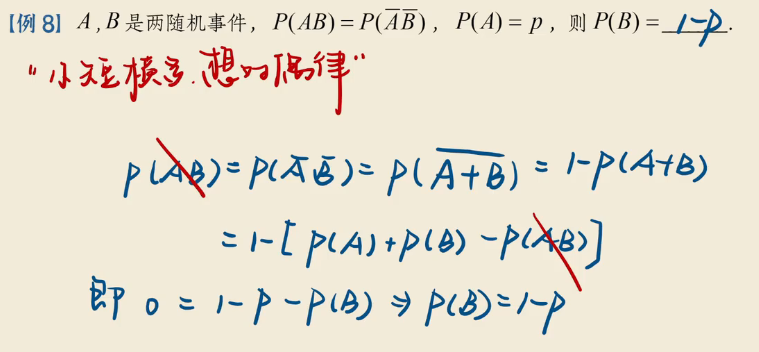 【例 8】 A , B 是两随机事件， P(AB) = P(A̅B̅) ， P(A) = p ，则 P(B) = 1-p .
“小短横多.想对偶律”
P(AB)=P(A̅ B̅)=P(\overline{A+B}) = 1-P(A+B)
= 1-[P(A)+P(B)-P(AB)]
即 0 = 1-P-P(B) ⇒ P(B)=1-P